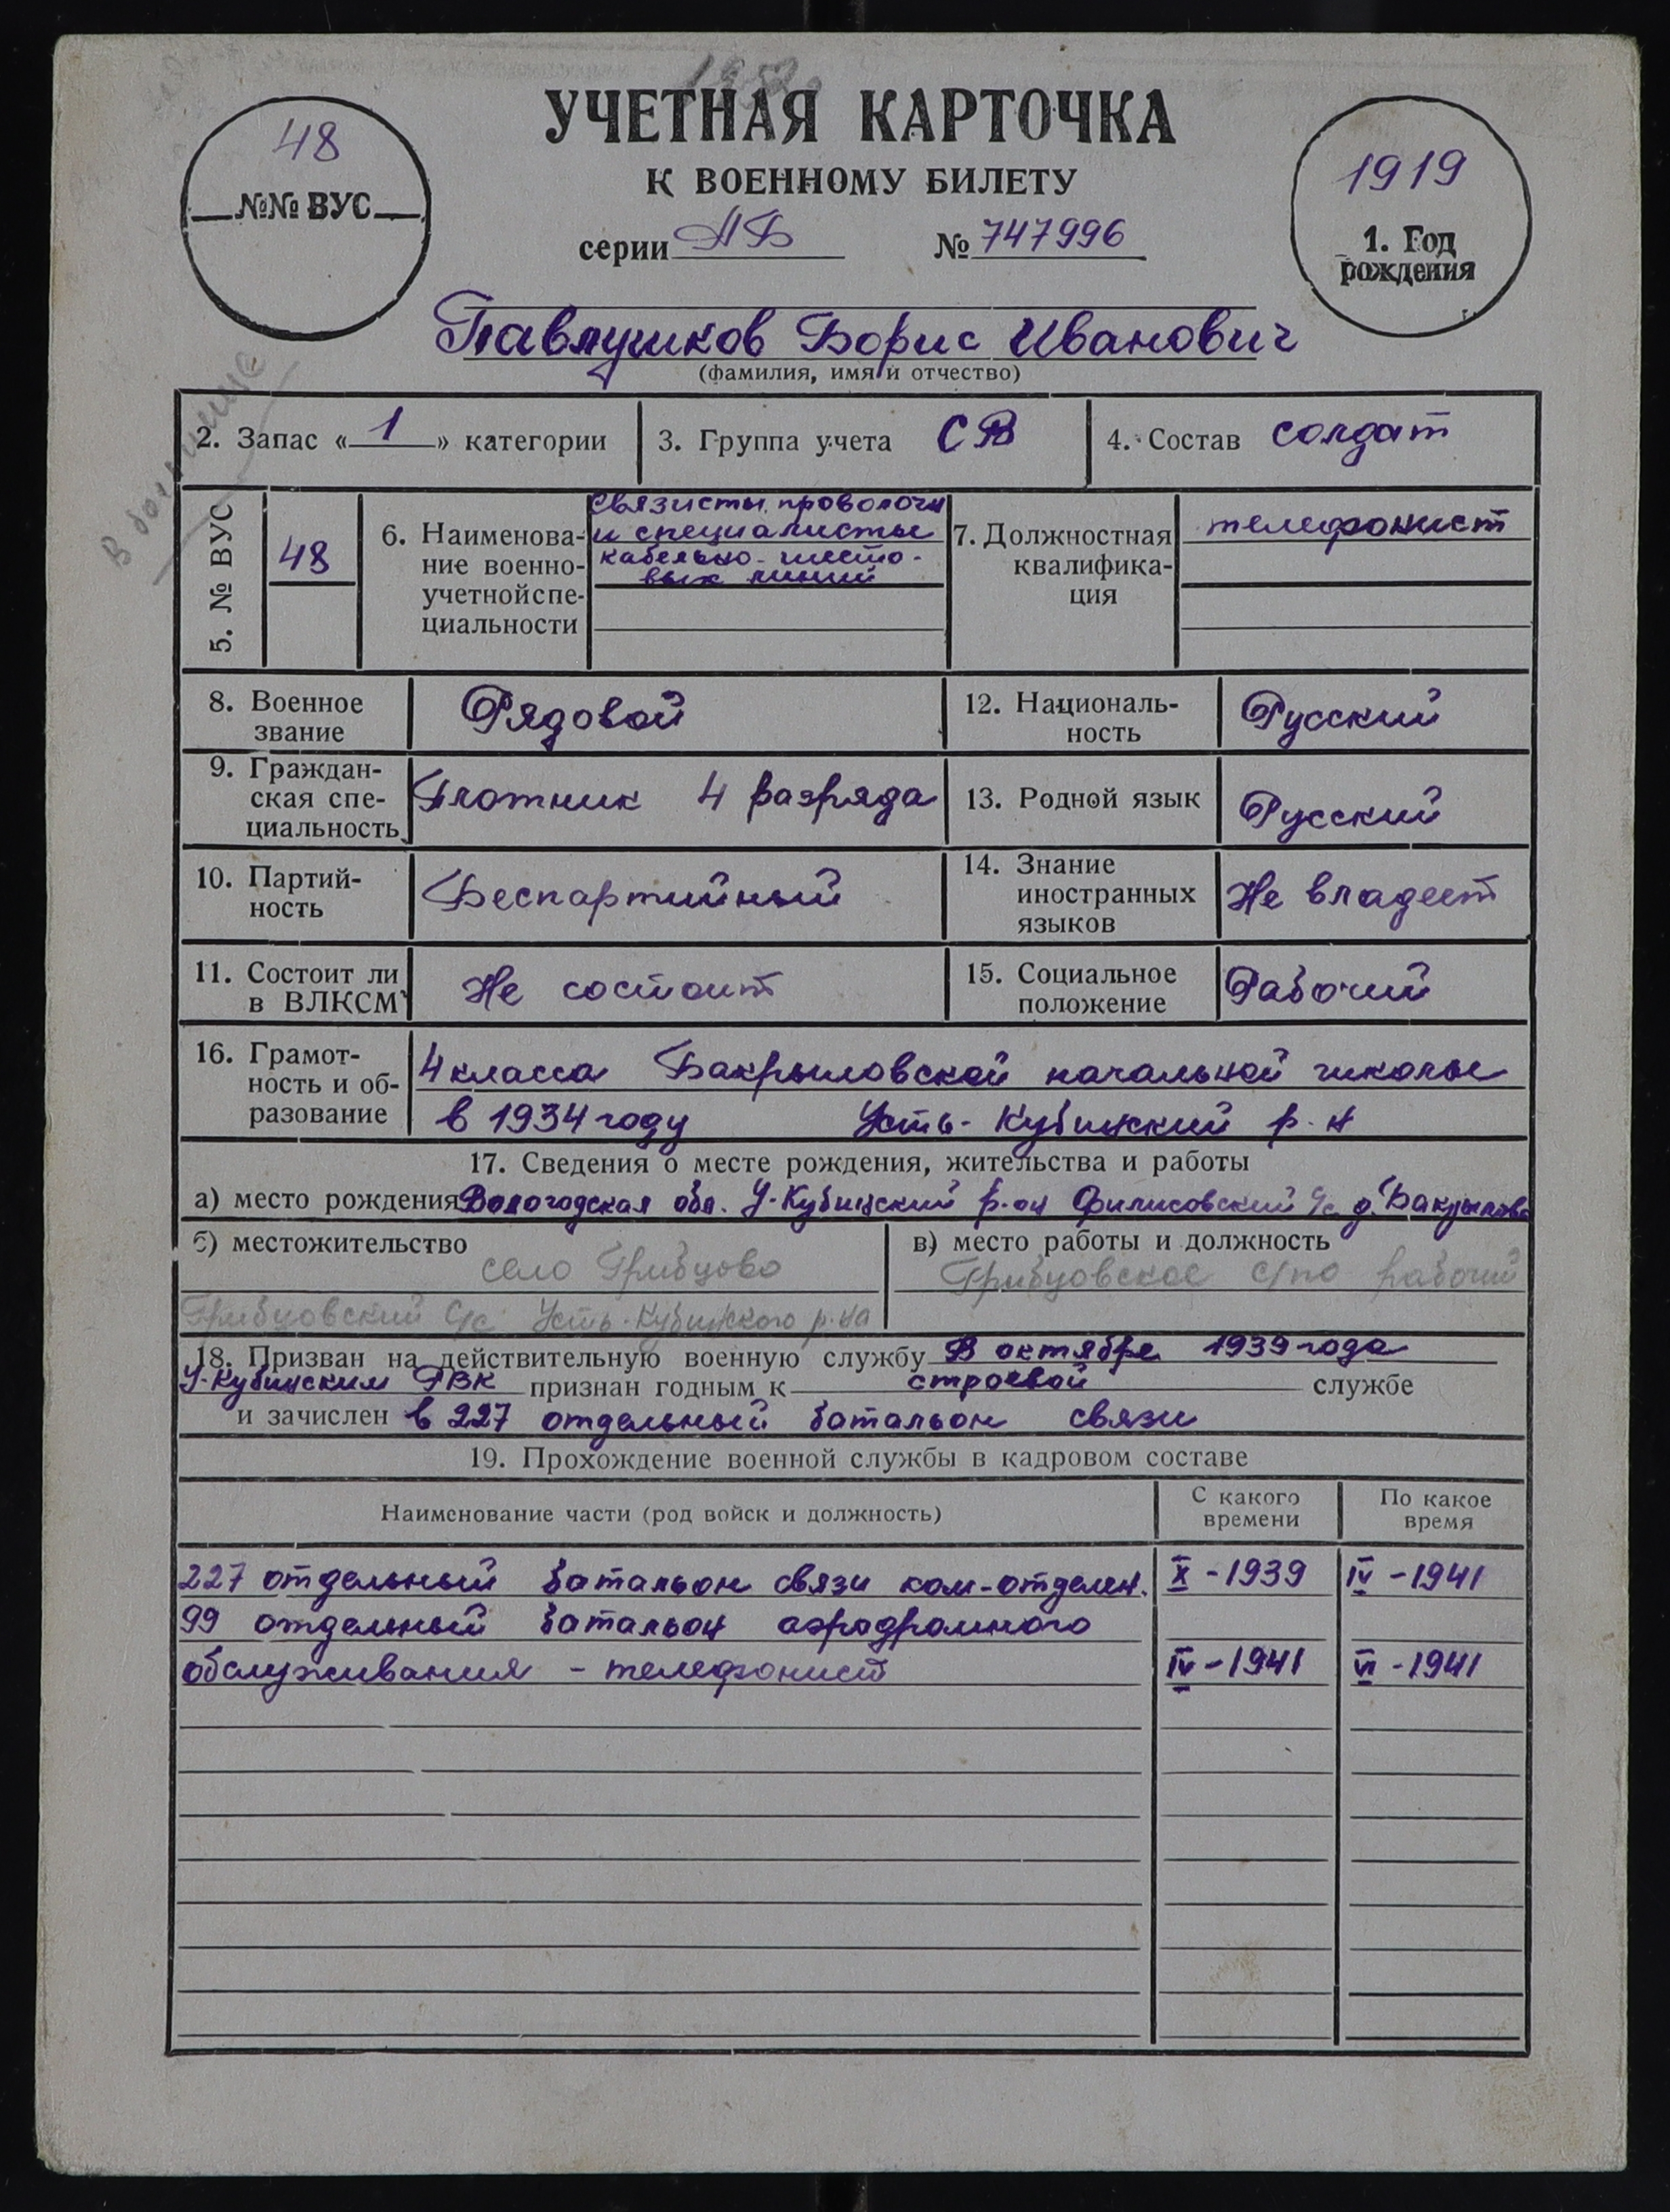 УЧЕТНАЯ КАРТОЧКА
К ВОЕННОМУ БИЛЕТУ
серии АБ № 747996
48
№№ ВУС
1919
1. Год
рождения
Павлушков Борис Иванович
(фамилия, имя и отчество)
2. Запас «1» категории
3. Группа учета СВ
4. Состав солдат
5. № ВУС
48
6. Наименова-
ние военно-
учетной спе-
циальности
Связисты проволочн
и специалисты
кабельно-шесто-
вых линий
7. Должностная
квалифика-
ция
телефонист
8. Военное
звание
Рядовой
12. Националь-
ность
Русский
9. Граждан-
ская спе-
циальность
Плотник 4 разряда
13. Родной язык
Русский
10. Партий-
ность
Беспартийный
14. Знание
иностранных
языков
Не владеет
11. Состоит ли
в ВЛКСМ
Не состоит
15. Социальное
положение
Рабочий
16. Грамот-
ность и об-
разование
4 класса Бакрыловской начальной школы
в 1934 году Усть-Кубинский р-н
17. Сведения о месте рождения, жительства и работы
а) место рождения Вологодская обл. У-Кубинский р-он Филисовский с/с д.
б) местожительство
село Грибцово
Грибцовский с/с Усть-Кубинского р-на
в) место работы и должность
Грибцовское с/по рабочий
18. Призван на действительную военную службу В октябре 1939 года
У-Кубинским РВК признан годным к строевой службе
и зачислен в 227 отдельный батальон связи
19. Прохождение военной службы в кадровом составе
Наименование части (род войск и должность)
С какого
времени
По какое
время
227 отдельный батальон связи ком-отделен. X-1939 IV-1941
99 отдельный батальон аэродромного
обслуживания - телефонист IV-1941 VI-1941